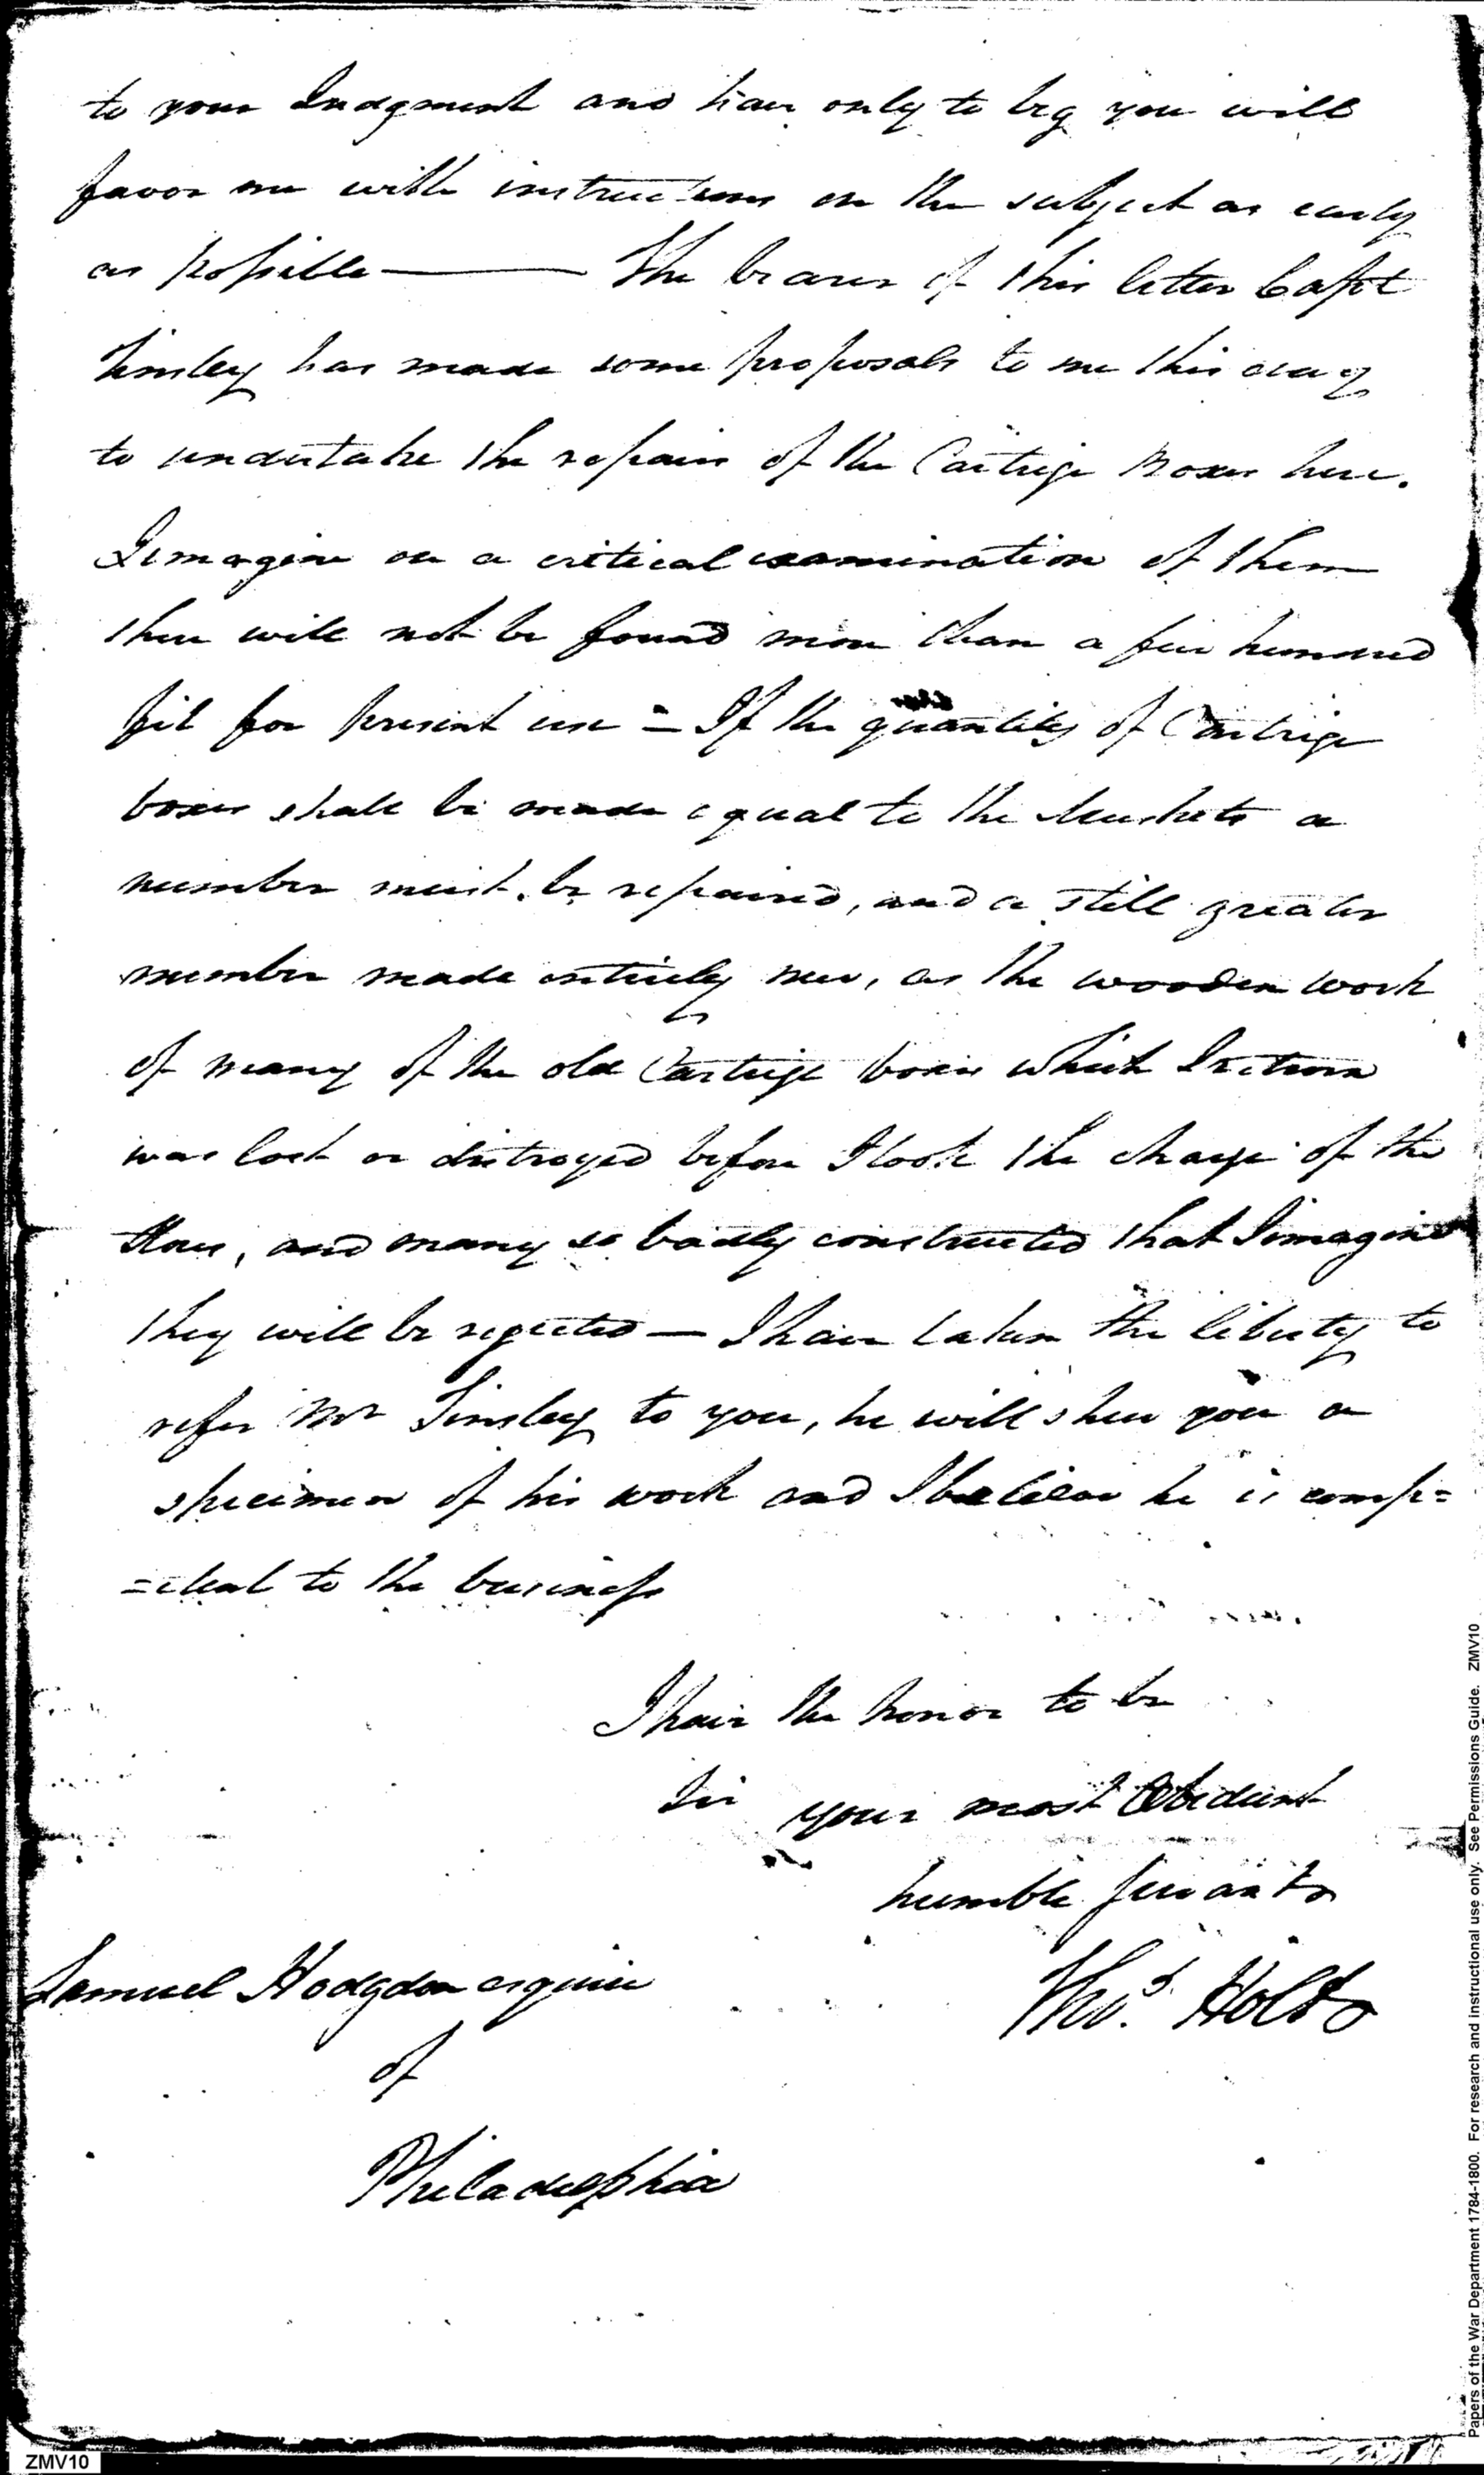 to your Judgment and have only to beg you will
favor me with instructions on the subject as early
as possible — The bearer of this letter Capt
Tinsley has made some proposals to me this day
to undertake the repairs of the Cartrige Boxes here.
I imagine on a critical examination of them
there will not be found more than a few hundred
fit for present use = If the quantity of Cartrige
boxes shall be made equal to the Muskets a
number must be repaired, and a still greater
number made entirely new, as the wooden work
of many of the old Cartrige boxes which I return
was lost or distroyed before I took the charge of the
Stores, and many so badly constructed that I imagine
they will be rejected — I have taken the liberty to
refer Mr Tinsley to you, he will shew you a
specimen of his work and I believe he is comp=
=etent to the business
I have the honor to be
Sir your most Obedient
humble Servant
Samuel Hodgdon esquire
Thos. Holt
of
Philadelphia
Papers of the War Department 1784-1800. For research and instructional use only. See Permissions Guide. ZMV10
ZMV10